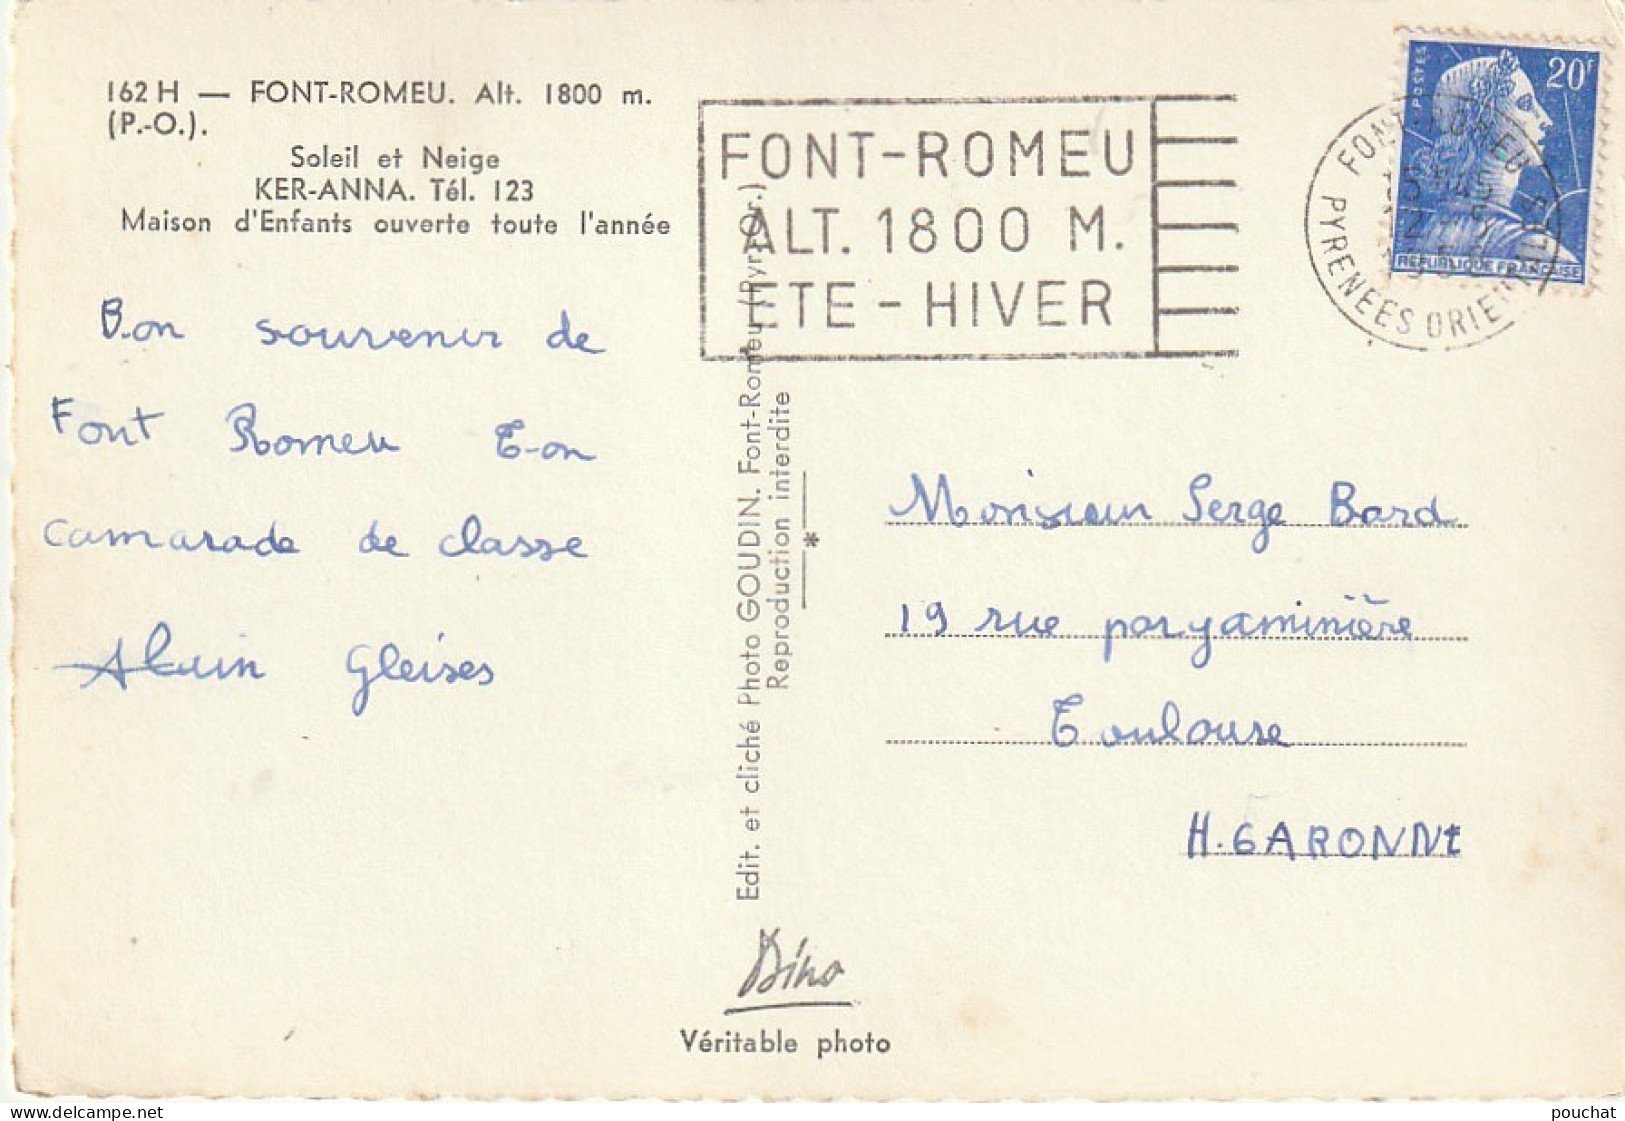 162 H — FONT-ROMEU. Alt. 1800 m.
(P.-O.).
Soleil et Neige
KER-ANNA. Tél. 123
Maison d'Enfants ouverte toute l'année
Bon souvenir de
Font Romeu Ton
camarade de classe
Alain Gleises
FONT-ROMEU
ALT. 1800 M.
ETE - HIVER
POSTES
20F
REPUBLIQUE FRANÇAISE
FONT-ROMEU
PYRENEES ORIENTALES
Edit. et cliché Photo GOUDIN. Font-Romeu (Pyr.-Or.)
Reproduction interdite
*
Monsieur Serge Bard
19 rue pargaminière
Toulouse
H. GARONNE
Dino
Véritable photo
www.delcampe.net
pouchat